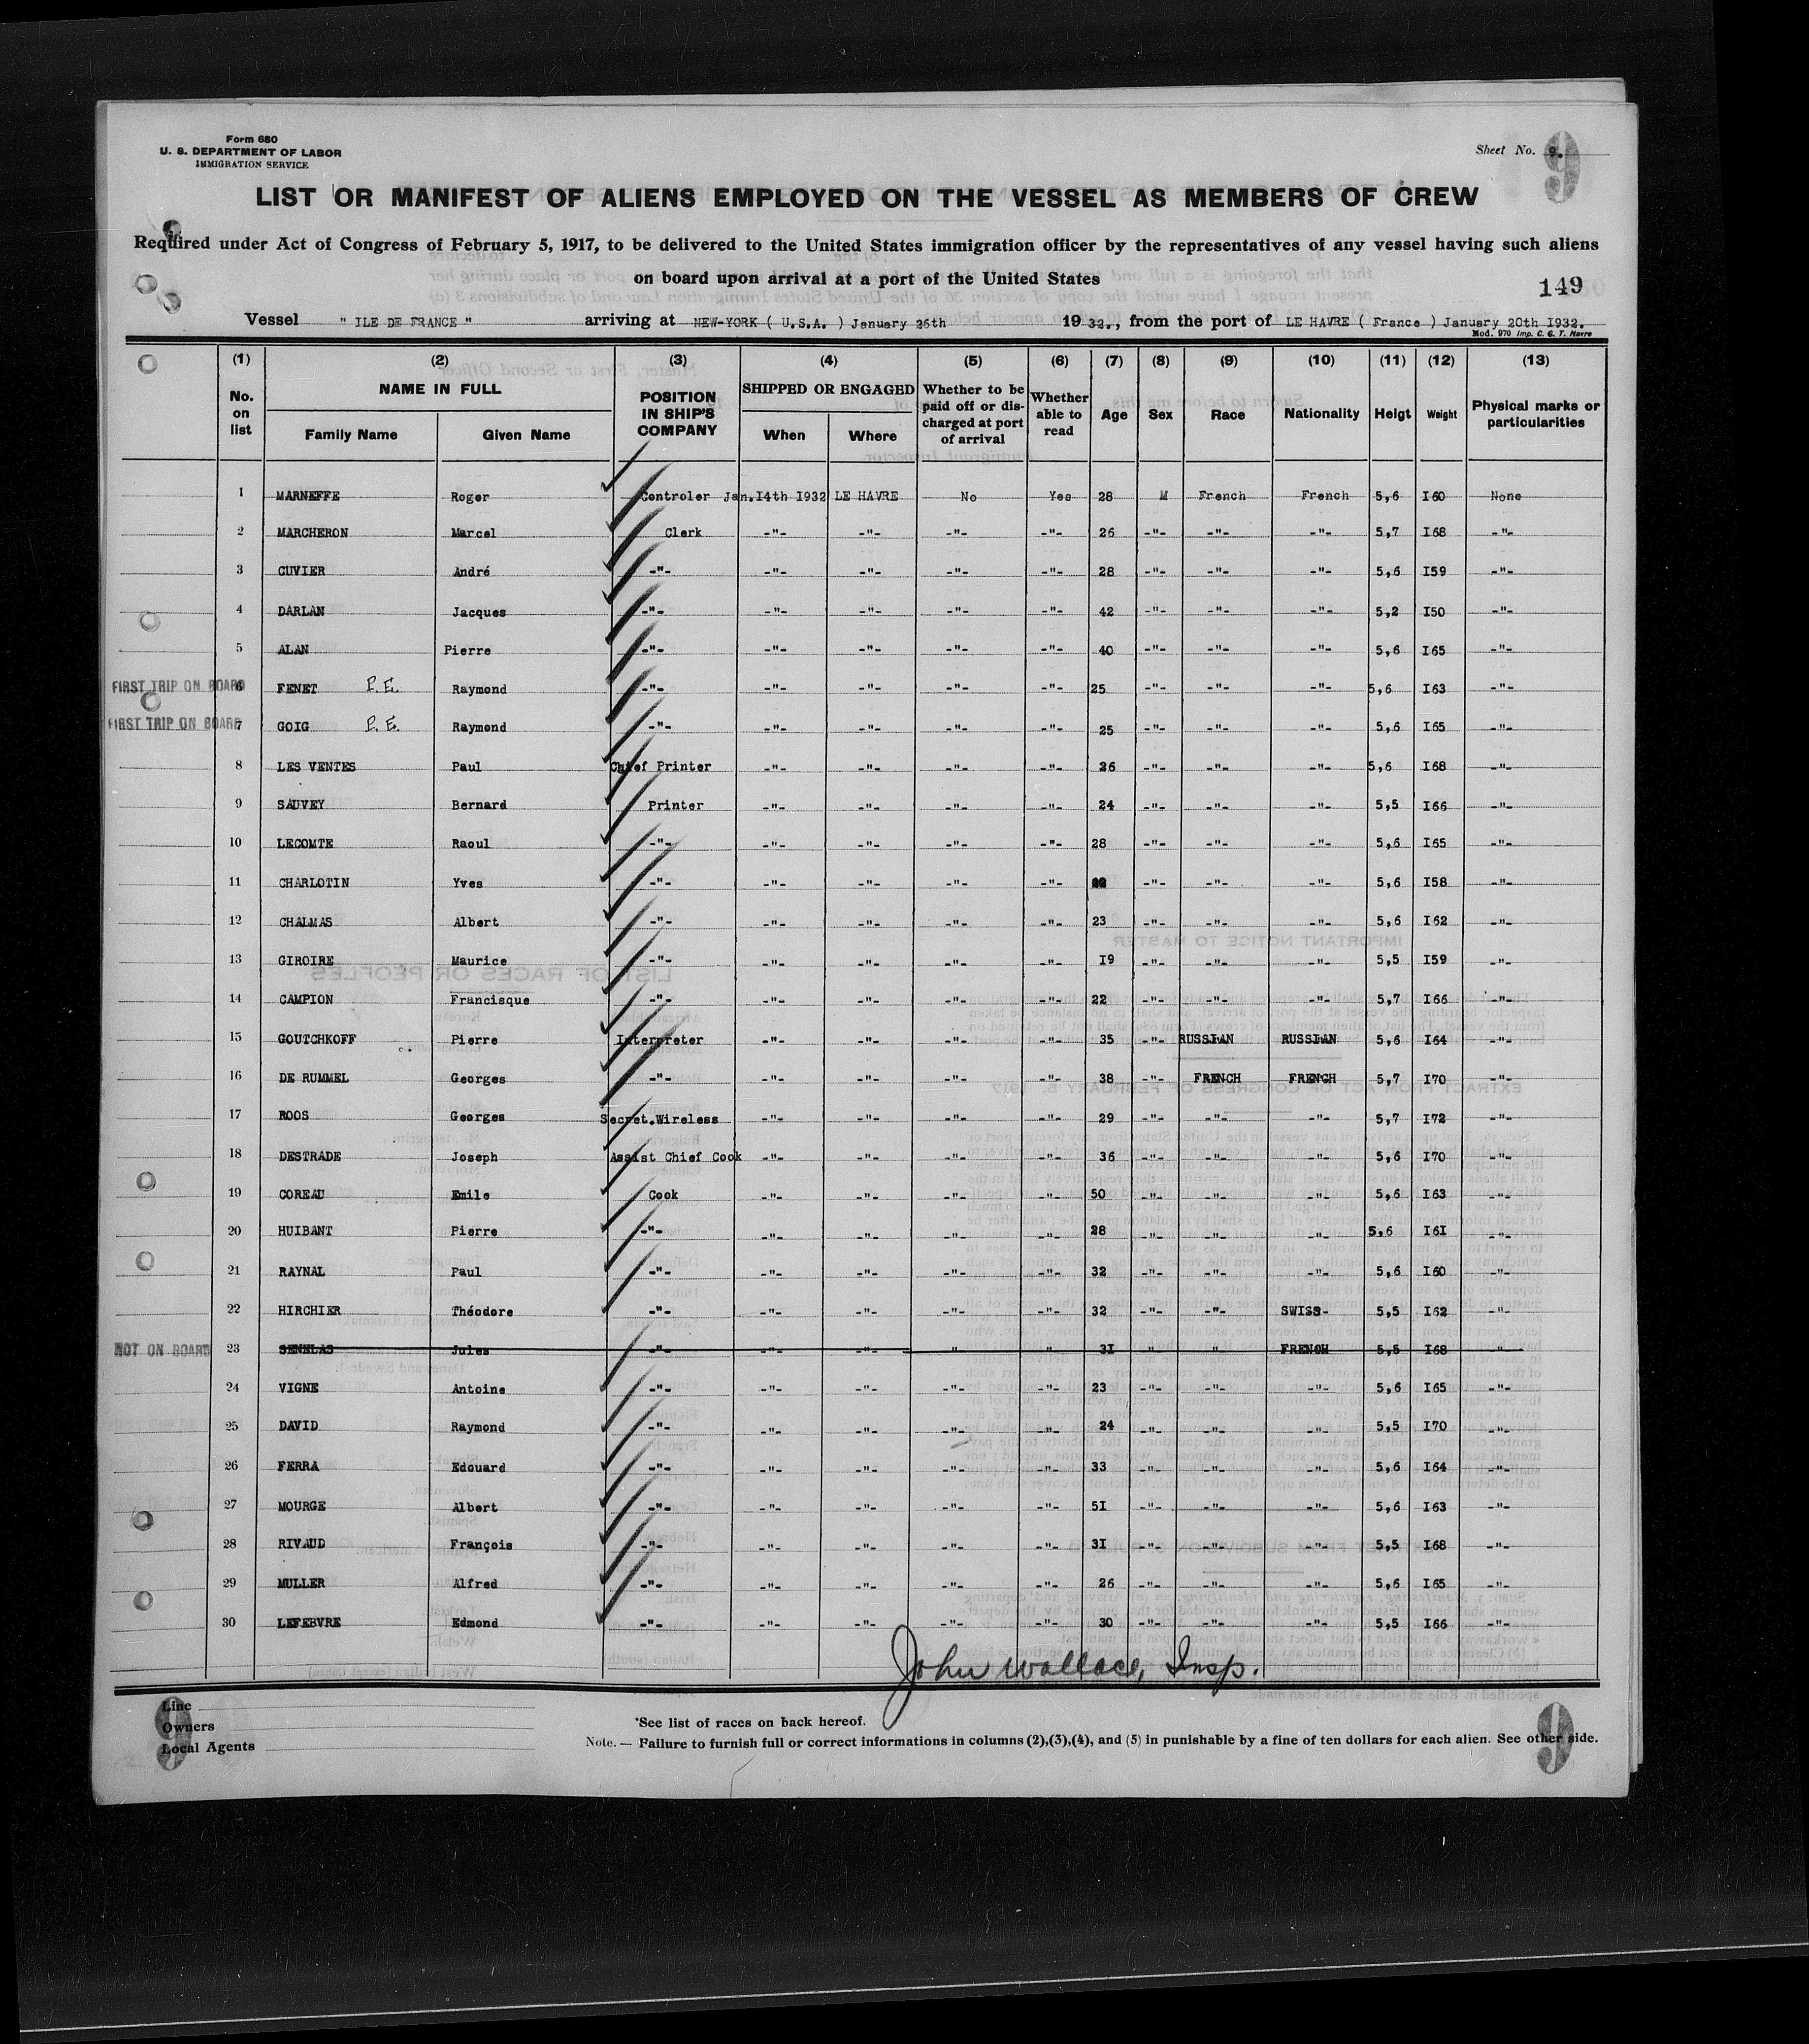 Form 680
U. S. DEPARTMENT OF LABOR
IMMIGRATION SERVICE
Sheet No. 9.
9
LIST OR MANIFEST OF ALIENS EMPLOYED ON THE VESSEL AS MEMBERS OF CREW
Required under Act of Congress of February 5, 1917, to be delivered to the United States immigration officer by the representatives of any vessel having such aliens
on board upon arrival at a port of the United States
149
Vessel " ILE DE FRANCE " arriving at NEW-YORK ( U.S.A. ) January 26th 1932., from the port of LE HAVRE ( France ) January 20th I932.
Mod. 970 Imp. C. G. T. Havre
(1) (2) (3) (4) (5) (6) (7) (8) (9) (10) (11) (12) (13)
No. on list NAME IN FULL Family Name Given Name POSITION IN SHIP'S COMPANY SHIPPED OR ENGAGED When Where Whether to be paid off or discharged at port of arrival Whether able to read Age Sex Race Nationality Heigt Weight Physical marks or particularities
1 MARNEFFE Roger Controler Jan.I4th I932 LE HAVRE No Yes 28 M French French 5,6 I60 None
2 MARCHERON Marcel Clerk -"- -"- -"- -"- 26 -"- -"- -"- 5,7 I68 -"-
3 CUVIER André -"- -"- -"- -"- -"- 28 -"- -"- -"- 5,6 I59 -"-
4 DARLAN Jacques -"- -"- -"- -"- -"- 42 -"- -"- -"- 5,2 I50 -"-
5 ALAN Pierre -"- -"- -"- -"- -"- 40 -"- -"- -"- 5,6 I65 -"-
FIRST TRIP ON BOARD 6 FENET P.E. Raymond -"- -"- -"- -"- -"- 25 -"- -"- -"- 5,6 I63 -"-
FIRST TRIP ON BOARD 7 GOIG P.E. Raymond -"- -"- -"- -"- -"- 25 -"- -"- -"- 5,6 I65 -"-
8 LES VENTES Paul Chief Printer -"- -"- -"- -"- 26 -"- -"- -"- 5,6 I68 -"-
9 SAUVEY Bernard Printer -"- -"- -"- -"- 24 -"- -"- -"- 5,5 I66 -"-
10 LECOMTE Raoul -"- -"- -"- -"- -"- 28 -"- -"- -"- 5,6 I65 -"-
11 CHARLOTIN Yves -"- -"- -"- -"- -"- -"- -"- -"- 5,6 I58 -"-
12 CHALMAS Albert -"- -"- -"- -"- -"- 23 -"- -"- -"- 5,6 I62 -"-
13 GIROIRE Maurice -"- -"- -"- -"- -"- I9 -"- -"- -"- 5,5 I59 -"-
14 CAMPION Francisque -"- -"- -"- -"- -"- 22 -"- -"- -"- 5,7 I66 -"-
15 GOUTCHKOFF Pierre Interpreter -"- -"- -"- -"- 35 -"- RUSSIAN RUSSIAN 5,6 I64 -"-
16 DE RUMMEL Georges -"- -"- -"- -"- -"- 38 -"- FRENCH FRENCH 5,7 I70 -"-
17 ROOS Georges Secret.Wireless -"- -"- -"- -"- 29 -"- -"- -"- 5,7 I72 -"-
18 DESTRADE Joseph Assist Chief Cook -"- -"- -"- -"- 36 -"- -"- -"- 5,6 I70 -"-
19 COREAU Emile Cook -"- -"- -"- -"- 50 -"- -"- -"- 5,6 I63 -"-
20 HUIBANT Pierre -"- -"- -"- -"- -"- 28 -"- -"- -"- 5,6 I6I -"-
21 RAYNAL Paul -"- -"- -"- -"- -"- 32 -"- -"- -"- 5,6 I60 -"-
22 HIRCHIER Théodore -"- -"- -"- -"- -"- 32 -"- -"- SWISS- 5,5 I62 -"-
NOT ON BOARD 23 SENELAS Jules -"- -"- -"- " -"- 3I " " FRENCH 5,5 I68 -"-
24 VIGNE Antoine -"- -"- -"- -"- -"- 23 -"- -"- -"- 5,6 I65 -"-
25 DAVID Raymond -"- -"- -"- -"- -"- 24 -"- -"- -"- 5,5 I70 -"-
26 FERRA Edouard -"- -"- -"- -"- -"- 33 -"- -"- -"- 5,6 I64 -"-
27 MOURGE Albert -"- -"- -"- -"- -"- 5I -"- -"- -"- 5,6 I63 -"-
28 RIVAUD François -"- -"- -"- -"- -"- 3I -"- -"- -"- 5,5 I68 -"-
29 MULLER Alfred -"- -"- -"- -"- -"- 26 -"- -"- -"- 5,6 I65 -"-
30 LEFEBVRE Edmond -"- -"- -"- -"- -"- 30 -"- -"- -"- 5,5 I66 -"-
John Wallace, Insp.
Line
Owners
Local Agents
9
*See list of races on back hereof.
Note. — Failure to furnish full or correct informations in columns (2),(3),(4), and (5) in punishable by a fine of ten dollars for each alien. See other side.
9